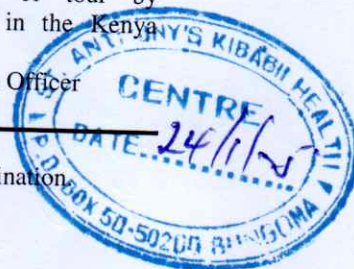 tour by
in the Kenya
Officer
ination
ST. ANTHONY'S KIBABII HEALTH
CENTRE
DATE 24/1/25
P.O. BOX 50-50200 BUNGOMA